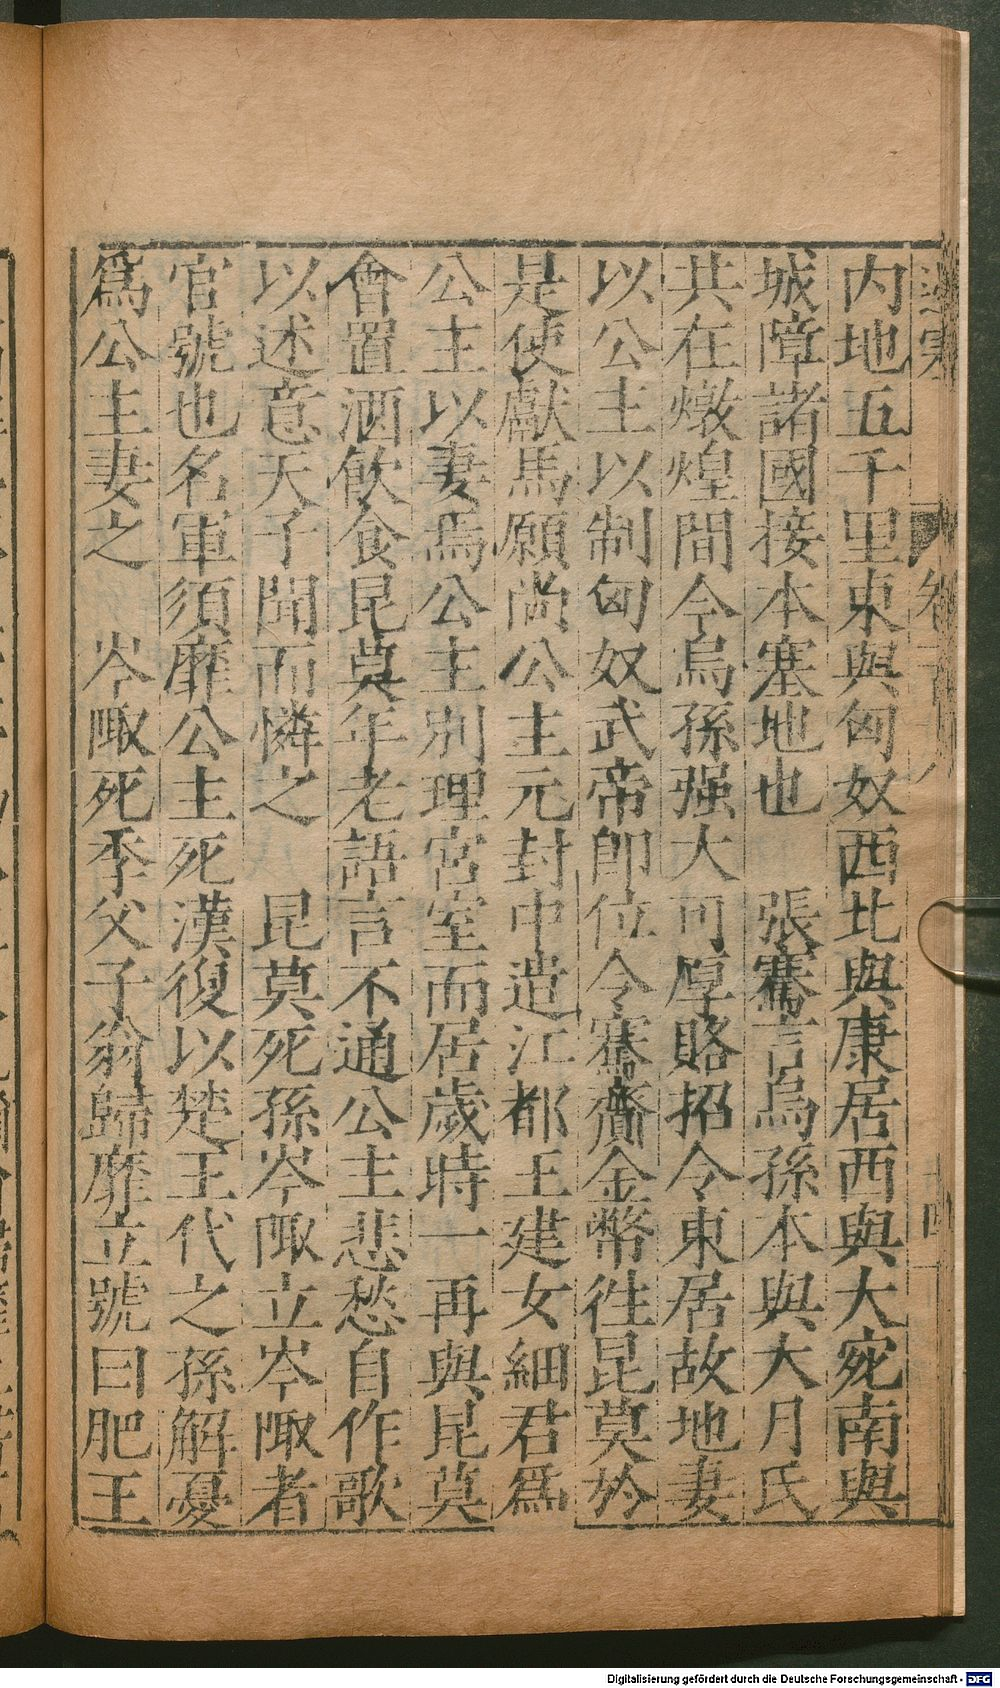 内地五千里東與匈奴西北與康居西與大宛南與
城障諸國接本塞地也　張騫言烏孫本與大月氏
共在燉煌間今烏孫强大可厚賂招令東居故地妻
以公主以制匈奴武帝即位令騫齎金幣往昆莫於
是使獻馬願尚公主元封中遣江都王建女細君爲
公主以妻焉公主別理宮室而居歲時一再與昆莫
會置酒飲食昆莫年老語言不通公主悲愁自作歌
以述意天子聞而憐之　昆莫死孫岑陬立岑陬者
官號也名軍須靡公主死漢復以楚王代之孫解憂
爲公主妻之　岑陬死季父子翁歸靡立號曰肥王
Digitalisierung gefördert durch die Deutsche Forschungsgemeinschaft - DFG